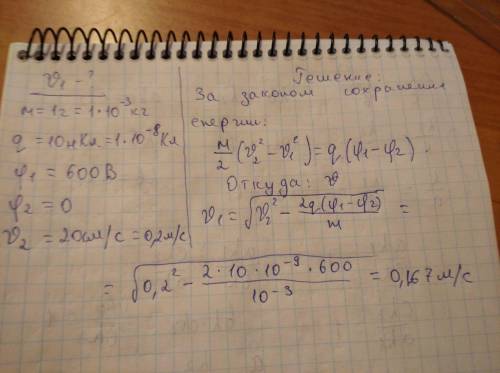 υ₁ - ?
м = 1г = 1·10⁻³ кг
q = 10нКл = 1·10⁻⁸ Кл
φ₁ = 600 В
φ₂ = 0
υ₂ = 20см/с = 0,2м/с
Решение:
За законом сохранения
енергии:
м/2 (υ₂² - υ₁²) = q (φ₁ - φ₂).
Откуда: υ
υ₁ = √(υ₂² - 2q(φ₁ - φ₂)/m) =
= √(0,2² - 2·10·10⁻⁹·600/10⁻³) = 0,167 м/с